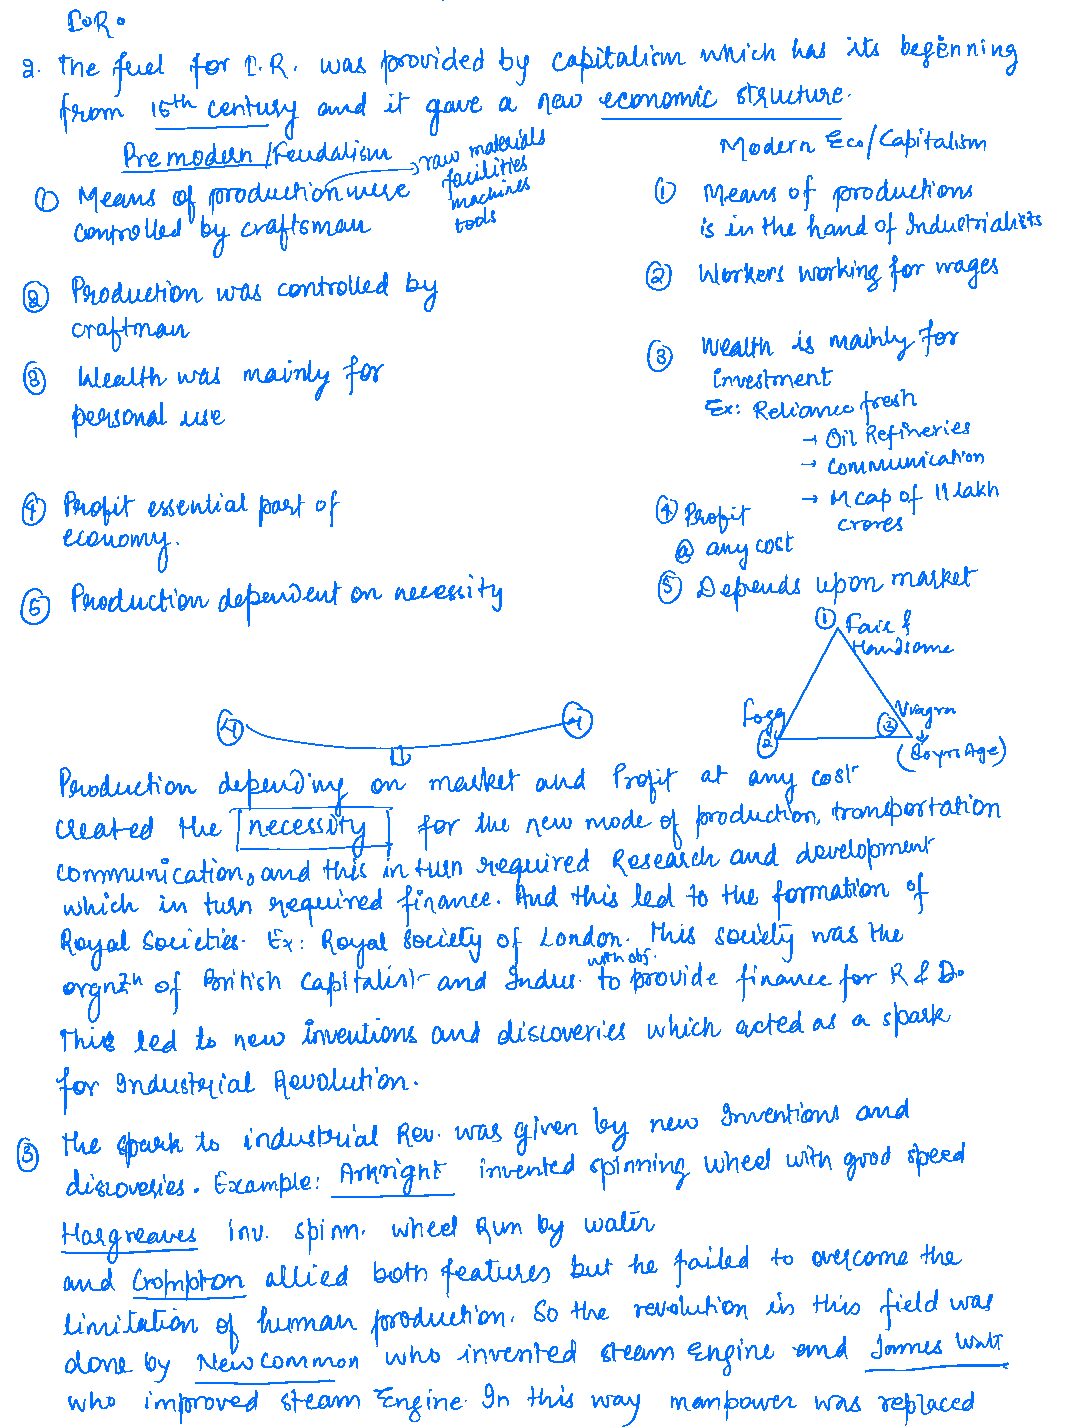 I.R.
2. The fuel for I.R. was provided by capitalism which has its beginning
from 15th century and it gave a new economic structure.
Premodern/Feudalism
Modern Eco/Capitalism
① Means of production were
controlled by craftsman
raw materials
facilities
machines
tools
② Production was controlled by
craftman
③ Wealth was mainly for
personal use
④ Profit essential part of
economy.
⑤ Production dependent on necessity
① Means of productions
is in the hand of Industrialists
② Workers working for wages
③ Wealth is mainly for
Investment
Ex: Reliance fresh
→ Oil Refineries
→ Communication
→ M cap of 11 lakh
crores
④ Profit
@ any cost
⑤ Depends upon market
① Fair &
Handsome
Fogg
②
③ Viagra
(      Age)
④ 4
Production depending on market and Profit at any cost
created the necessity for the new mode of production, transportation
communication, and this in turn required Research and development
which in turn required finance. And this led to the formation of
Royal Societies. Ex: Royal Society of London. This society was the
with obj.
orgnzn of British Capitalist and Indus. to provide finance for R & D.
This led to new inventions and discoveries which acted as a spark
for Industrial Revolution.
③ The spark to industrial Rev. was given by new Inventions and
discoveries. Example: Arkright invented spinning wheel with good speed
Hargreaves inv. spinn. wheel Run by water
and Crompton allied both features but he failed to overcome the
limitation of human production. So the revolution in this field was
done by New common who invented steam Engine and James Watt
who improved steam Engine. In this way manpower was replaced